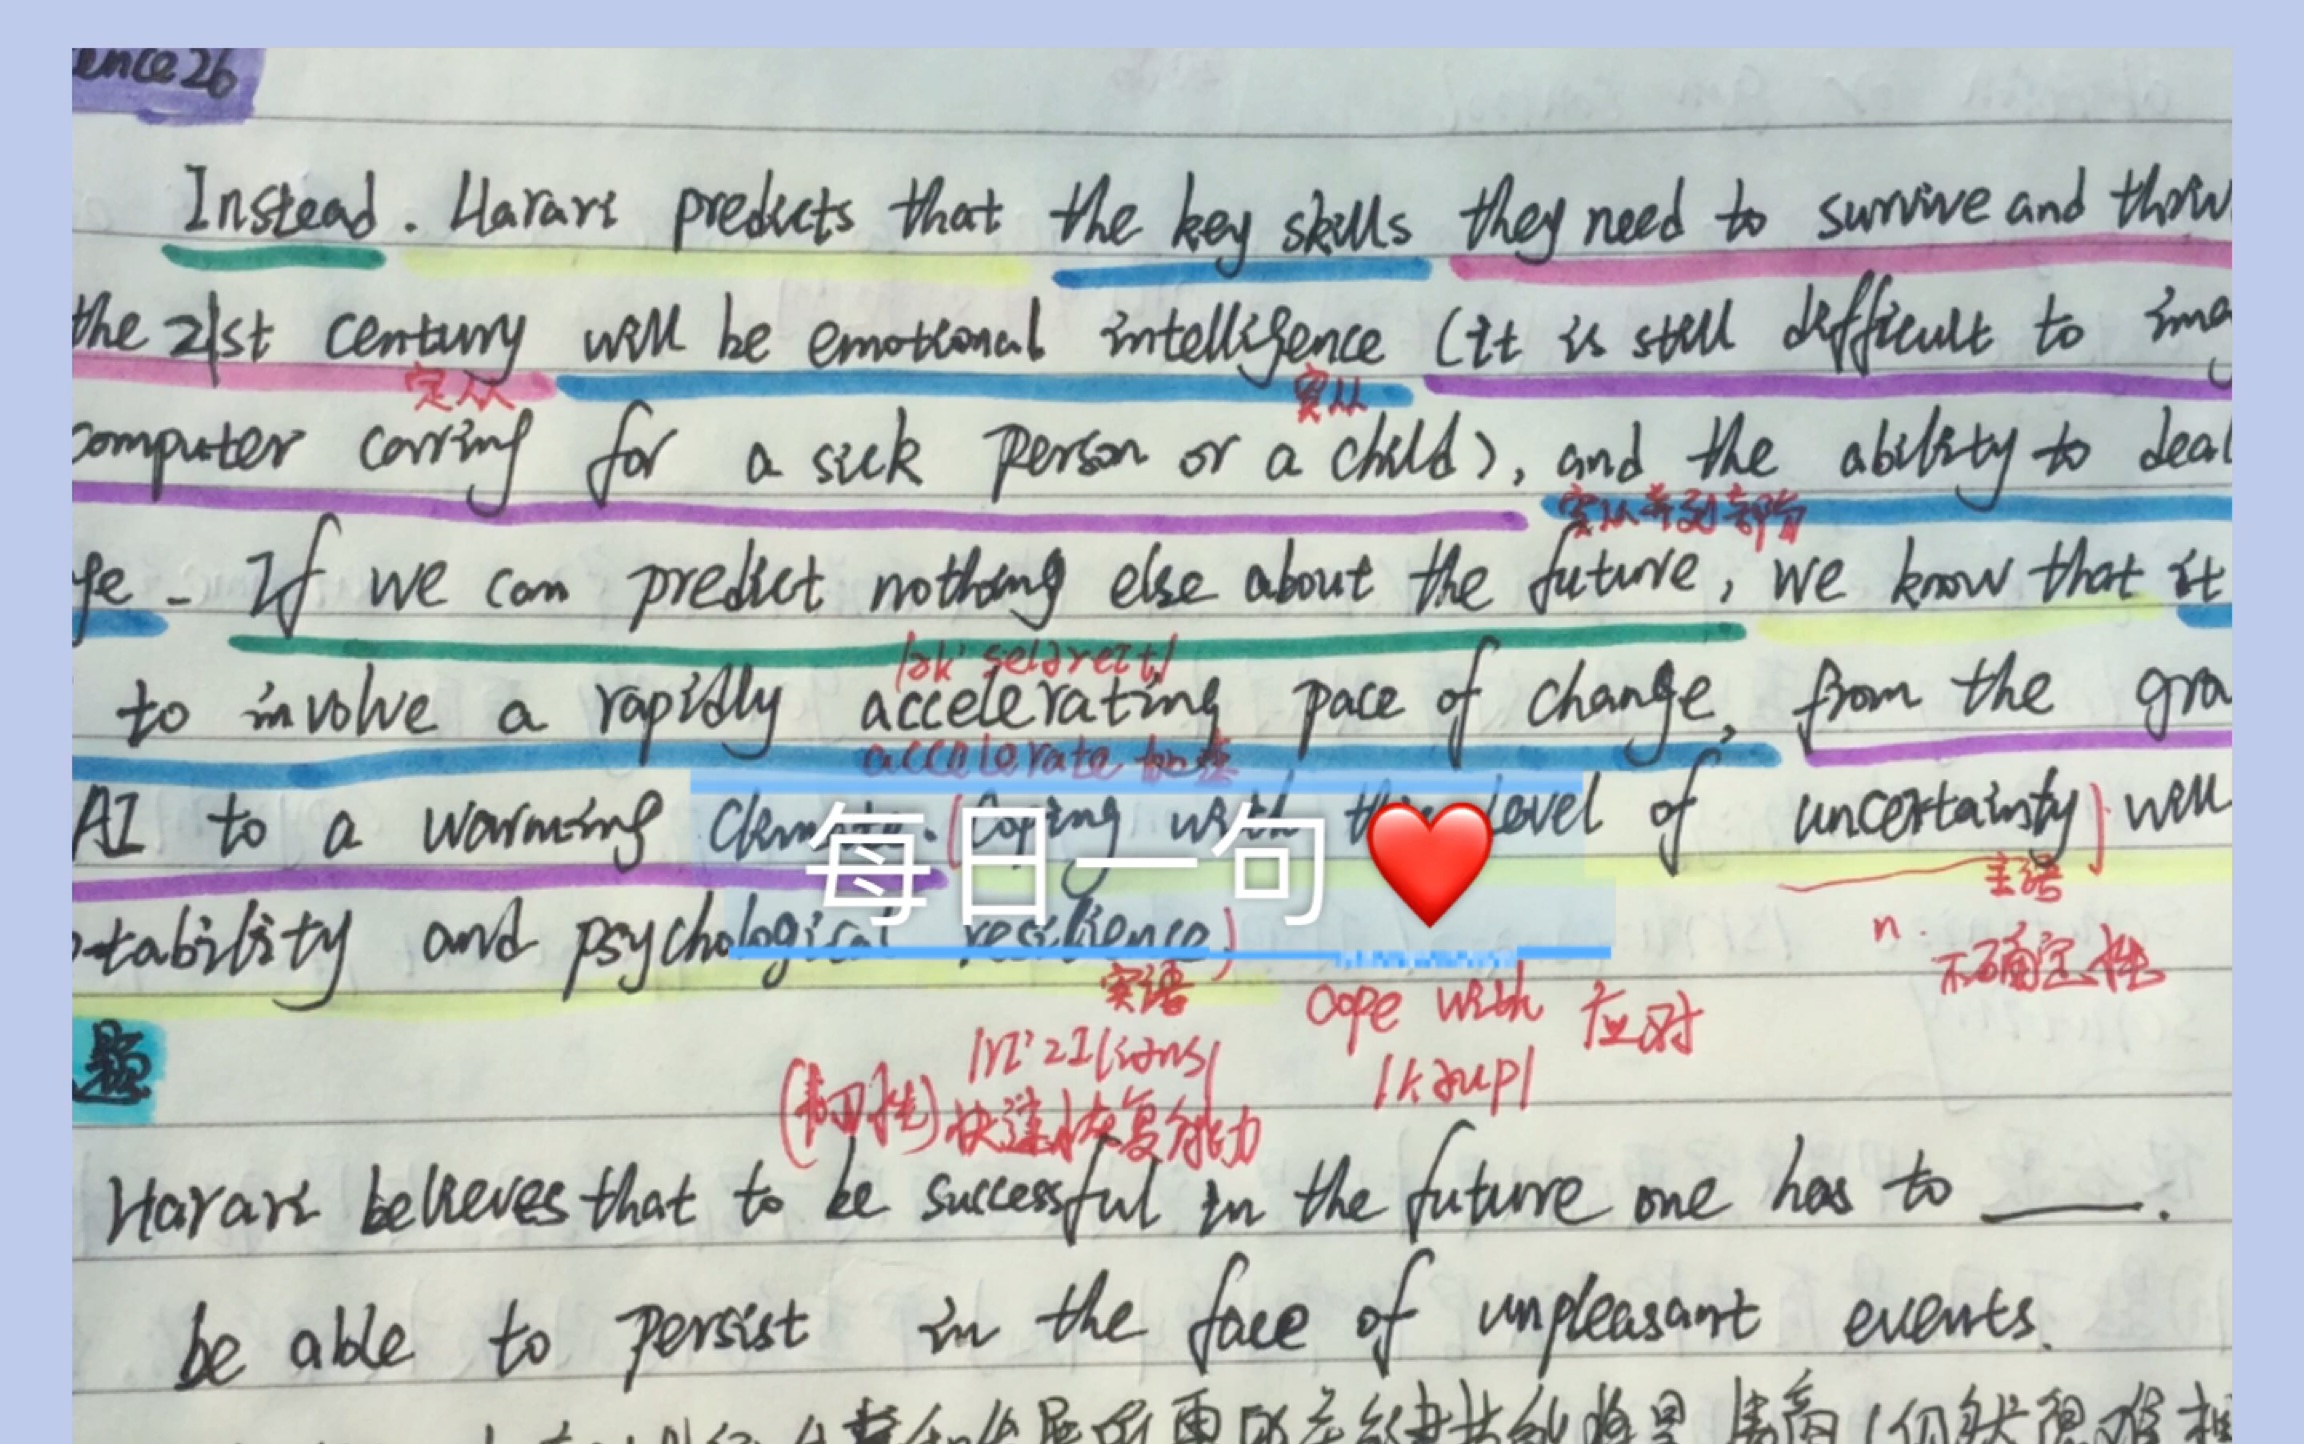 ence 26
Instead. Harari predicts that the key skills they need to survive and thriv
the 21st century will be emotional intelligence (it is still difficult to ima
定从
宾从
computer carring for a sick person or a child), and the ability to deal
宾从并列部分
ge. If we can predict nothing else about the future, we know that it
/ək'seləreɪt/
to involve a rapidly accelerating pace of change, from the gra
accelerate 加速
AI to a warming climate. (Coping with this level of uncertainty) will
每日一句❤️
主语
n.
不确定性
tability and psychological resilience)
宾语
cope with 应对
/rɪ'zɪliəns/
/kəup/
(韧性) 快速恢复能力
题
Harari believes that to be successful in the future one has to ___.
be able to persist in the face of unpleasant events.